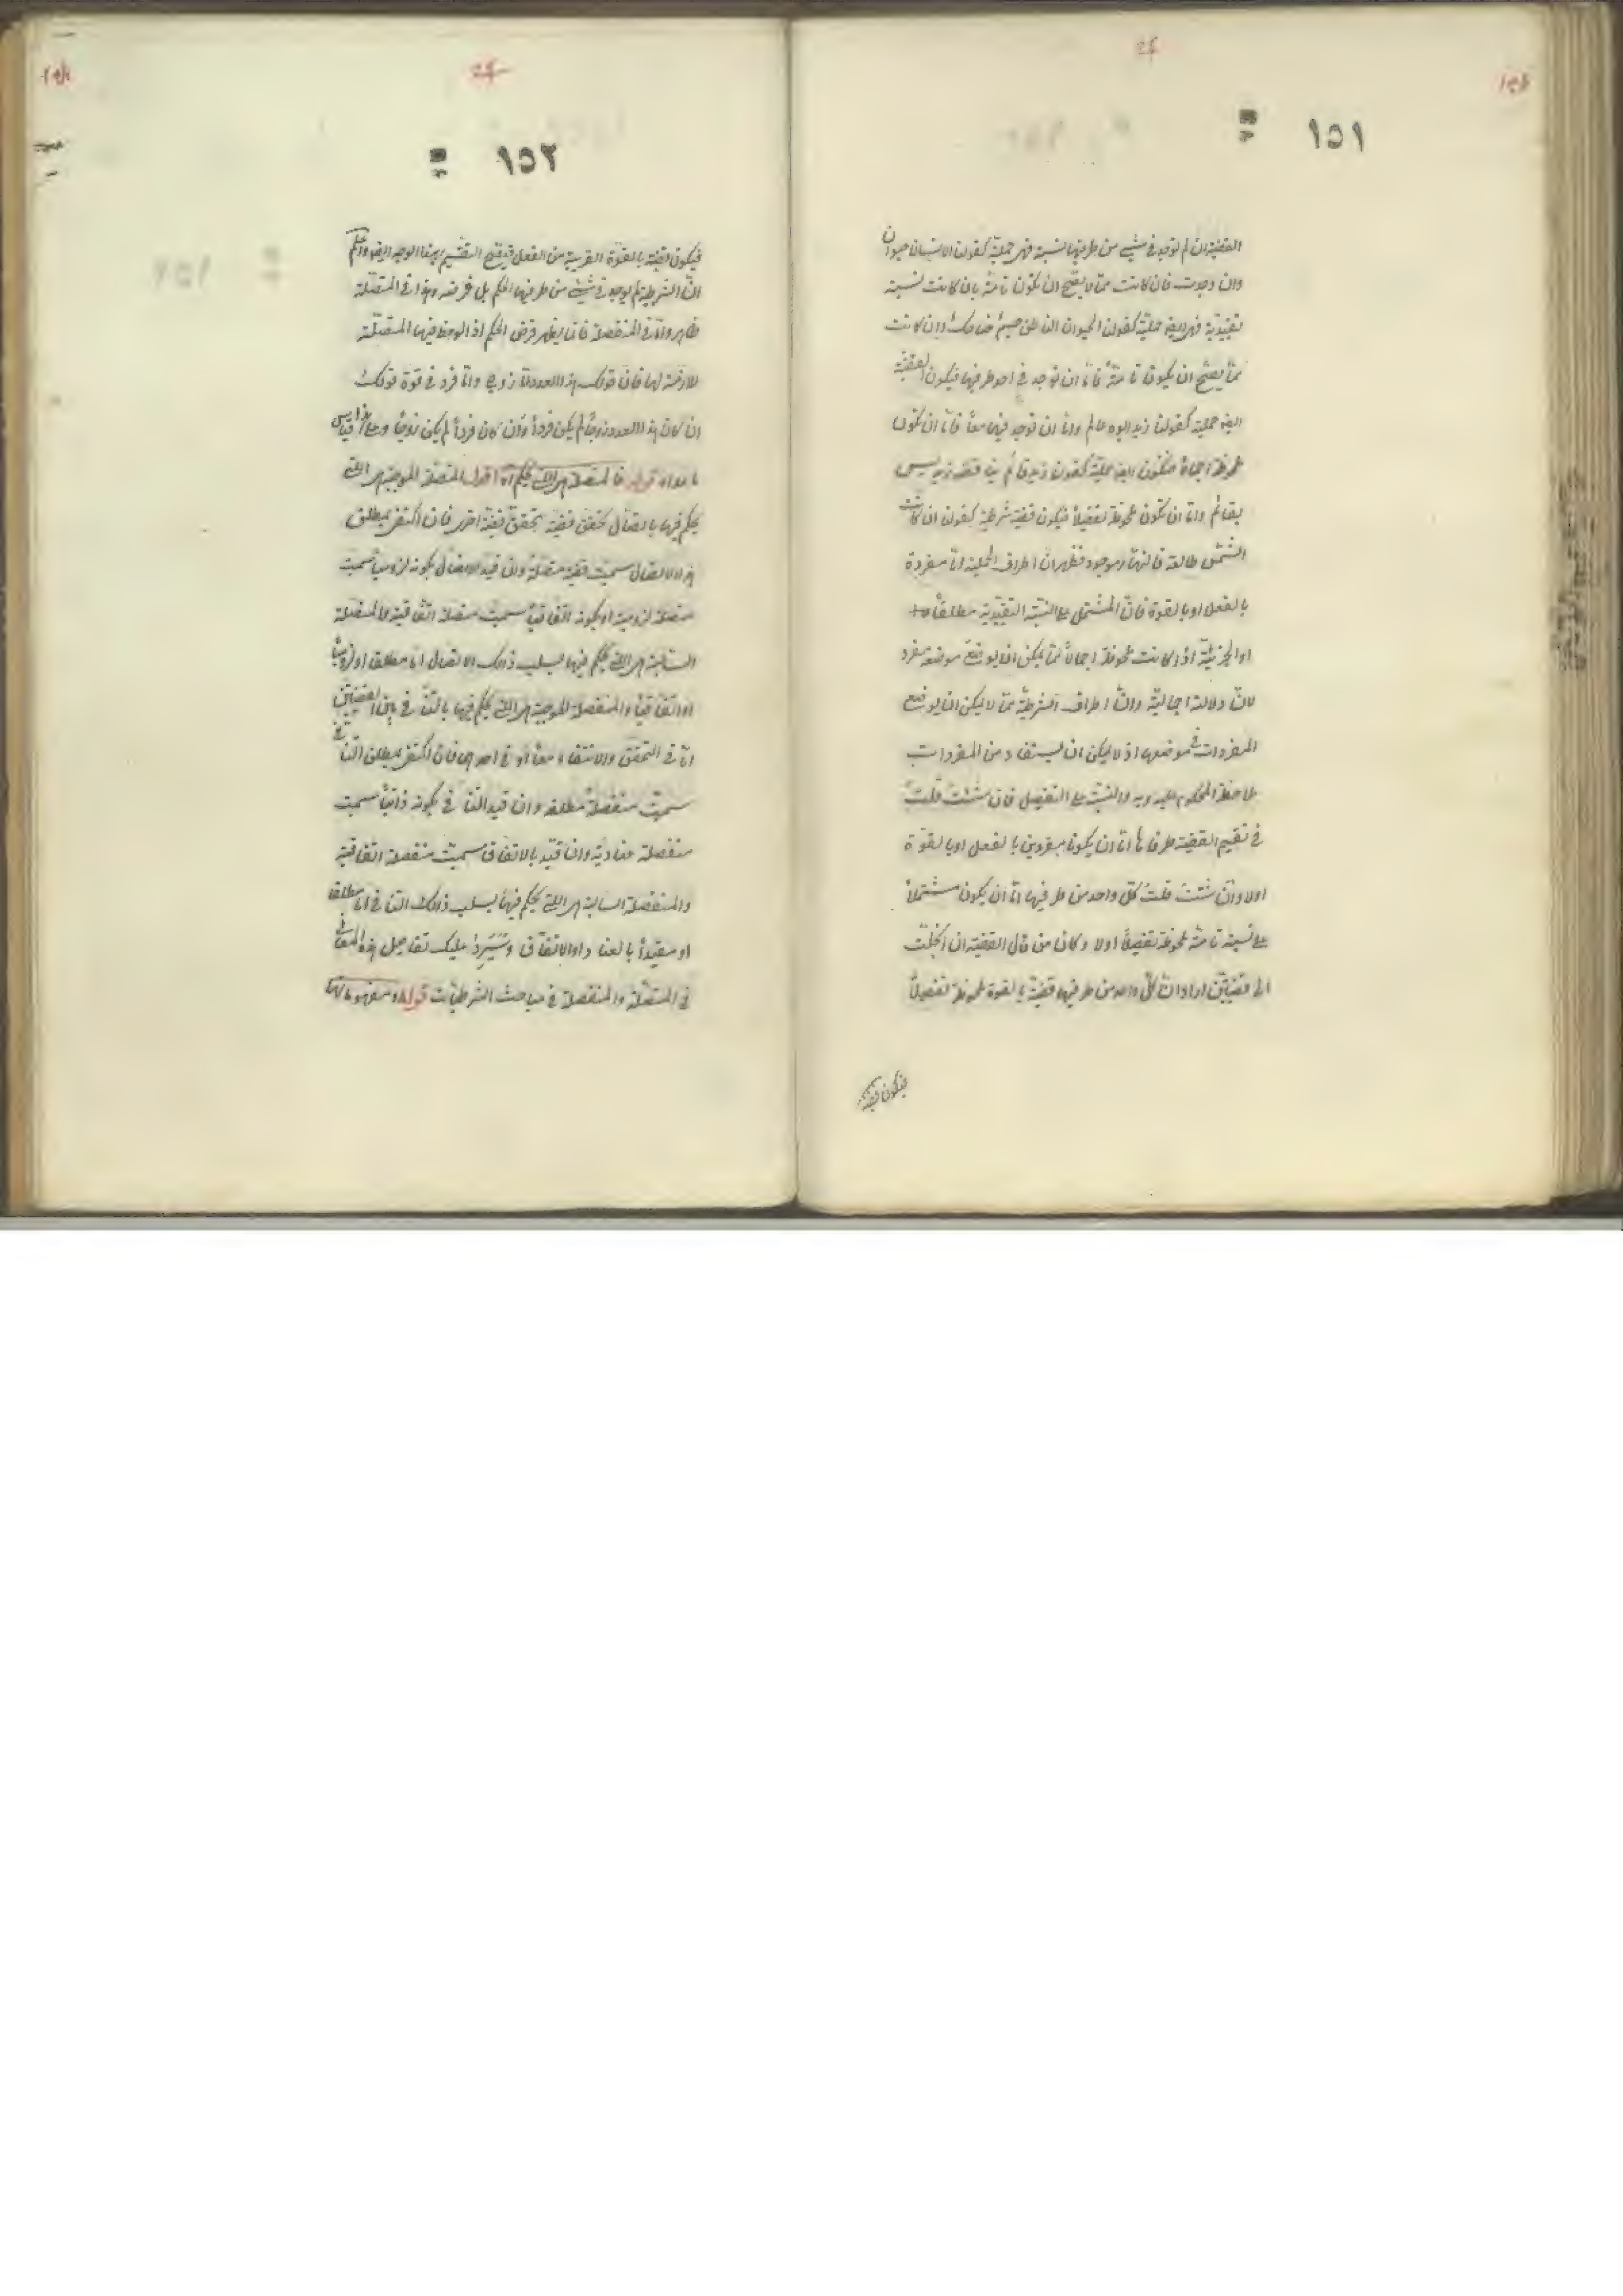 ١٥١
القضية ان لم توجد في شيء من طرفيها نسبة فهي حملية كقولنا الانسان حيوان
وان وجدت فان كانت مما لا يصح ان تكون تامة بان كانت نسبة
تقييدية فهي ايضا حملية كقولنا الحيوان الناطق جسم ضاحك وان كانت
مما يصح ان يكون تامة فاما ان توجد في احد طرفيها فيكون القضية
ايضا حملية كقولنا زيد ابوه عالم واما ان توجد فيهما معا فاما ان تكون
ملحوظة اجمالا فتكون ايضا حملية كقولنا زيد قائم قضية زيد ليس
بقائم واما ان تكون ملحوظة تفصيلا فيكون قضية شرطية كقولنا ان كانت
الشمس طالعة فالنهار موجود فظهر ان اطراف الحملية اما مفردة
بالفعل او بالقوة فان المشتمل على النسبة التقييدية مطلقا
او الخبرية اذا كانت ملحوظة اجمالا مما يمكن ان يوضع موضعه مفرد
لان دلالته اجمالية وان اطراف الشرطية مما لا يمكن ان يوضع
المفردات في موضعها اذ لا يمكن ان يستفاد من المفردات
ملاحظة المحكوم عليه وبه والنسبة على التفصيل فان شئت قلت
في تقسيم القضية طرفاها اما ان يكونا مفردين بالفعل او بالقوة
اولا وان شئت قلت كل واحد من طرفيها اما ان يكون مشتملا
على نسبة تامة ملحوظة تفصيلا اولا وكان من قال القضية ان انحلت
الى قضيتين اراد ان كل واحد من طرفيها قضية بالقوة ملحوظة تفصيلا
فيكون قضية
١٥٢
فيكون قضية بالقوة القريبة من الفعل فيصح التقسيم بهذا الوجه ايضا واعلم
ان الشرطية لم يوجد في شيء من طرفيها الحكم بل فرضه وهذا في المتصلة
ظاهر واما في المنفصلة فانما يظهر فرض الحكم اذا لوحظ فيها المتصلة
اللازمة لها فان قولك هذا العدد اما زوج واما فرد في قوة قولك
ان كان هذا العدد زوجا لم يكن فردا وان كان فردا لم يكن زوجا وعلى هذا قياس
ما عداه قوله فالمتصلة هي التي يحكم اه اقول المتصلة الموجبة هي التي
يحكم فيها باتصال تحقق قضية بتحقق قضية اخرى فان اكتفى بمطلق
هذا الاتصال سميت قضية متصلة وان قيد الاتصال بكونه لزوميا سميت
متصلة لزومية او بكونه اتفاقيا سميت متصلة اتفاقية والمتصلة
السالبة هي التي يحكم فيها بسلب ذلك الاتصال اما مطلقا او لزوميا
او اتفاقيا والمنفصلة الموجبة هي التي يحكم فيها بالتنافي بين القضيتين
اما في التحقق والانتفاء معا او في احدهما فان اكتفى بمطلق التنافي
سميت منفصلة مطلقة وان قيد التنافي بكونه ذاتيا سميت
منفصلة عنادية وان قيد بالاتفاق سميت منفصلة اتفاقية
والمنفصلة السالبة هي التي يحكم فيها بسلب ذلك التنافي اما مطلقا
او مقيدا بالعناد او الاتفاق وسيرد عليك تفاصيل هذه المعاني
في المتصلة والمنفصلة في مباحث الشرطيات قوله